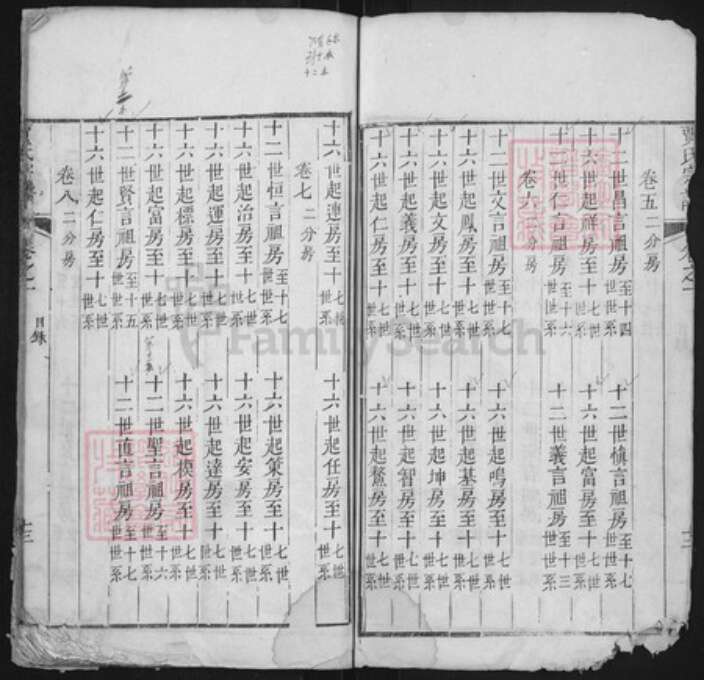 卷五二分房
十二世昌言祖房至十四世世系 十二世慎言祖房至十七世世系
十六世起祥房至十七世世系 十六世起富房至十七世世系
十二世仁言祖房至十六世世系 十二世義言祖房至十三世世系
卷六二分房
十二世文言祖房至十七世世系 十六世起鳴房至十七世世系
十六世起鳳房至十七世世系 十六世起基房至十七世世系
十六世起文房至十七世世系 十六世起坤房至十七世世系
十六世起義房至十七世世系 十六世起智房至十七世世系
十六世起仁房至十七世世系 十六世起鰲房至十七世世系
十六世起連房至十七世世系 十六世起任房至十七世世系
卷七二分房
十二世恒言祖房至十七世世系 十六世起策房至十七世世系
十六世起治房至十七世世系 十六世起安房至十七世世系
十六世起運房至十七世世系 十六世起達房至十七世世系
十六世起標房至十七世世系 十六世起模房至十七世世系
十六世起富房至十七世世系 十二世聖言祖房至十六世世系
十二世賢言祖房至十五世世系 十二世直言祖房至十七世世系
十六世起仁房至十七世世系
卷八二分房
目錄
十三
FamilySearch